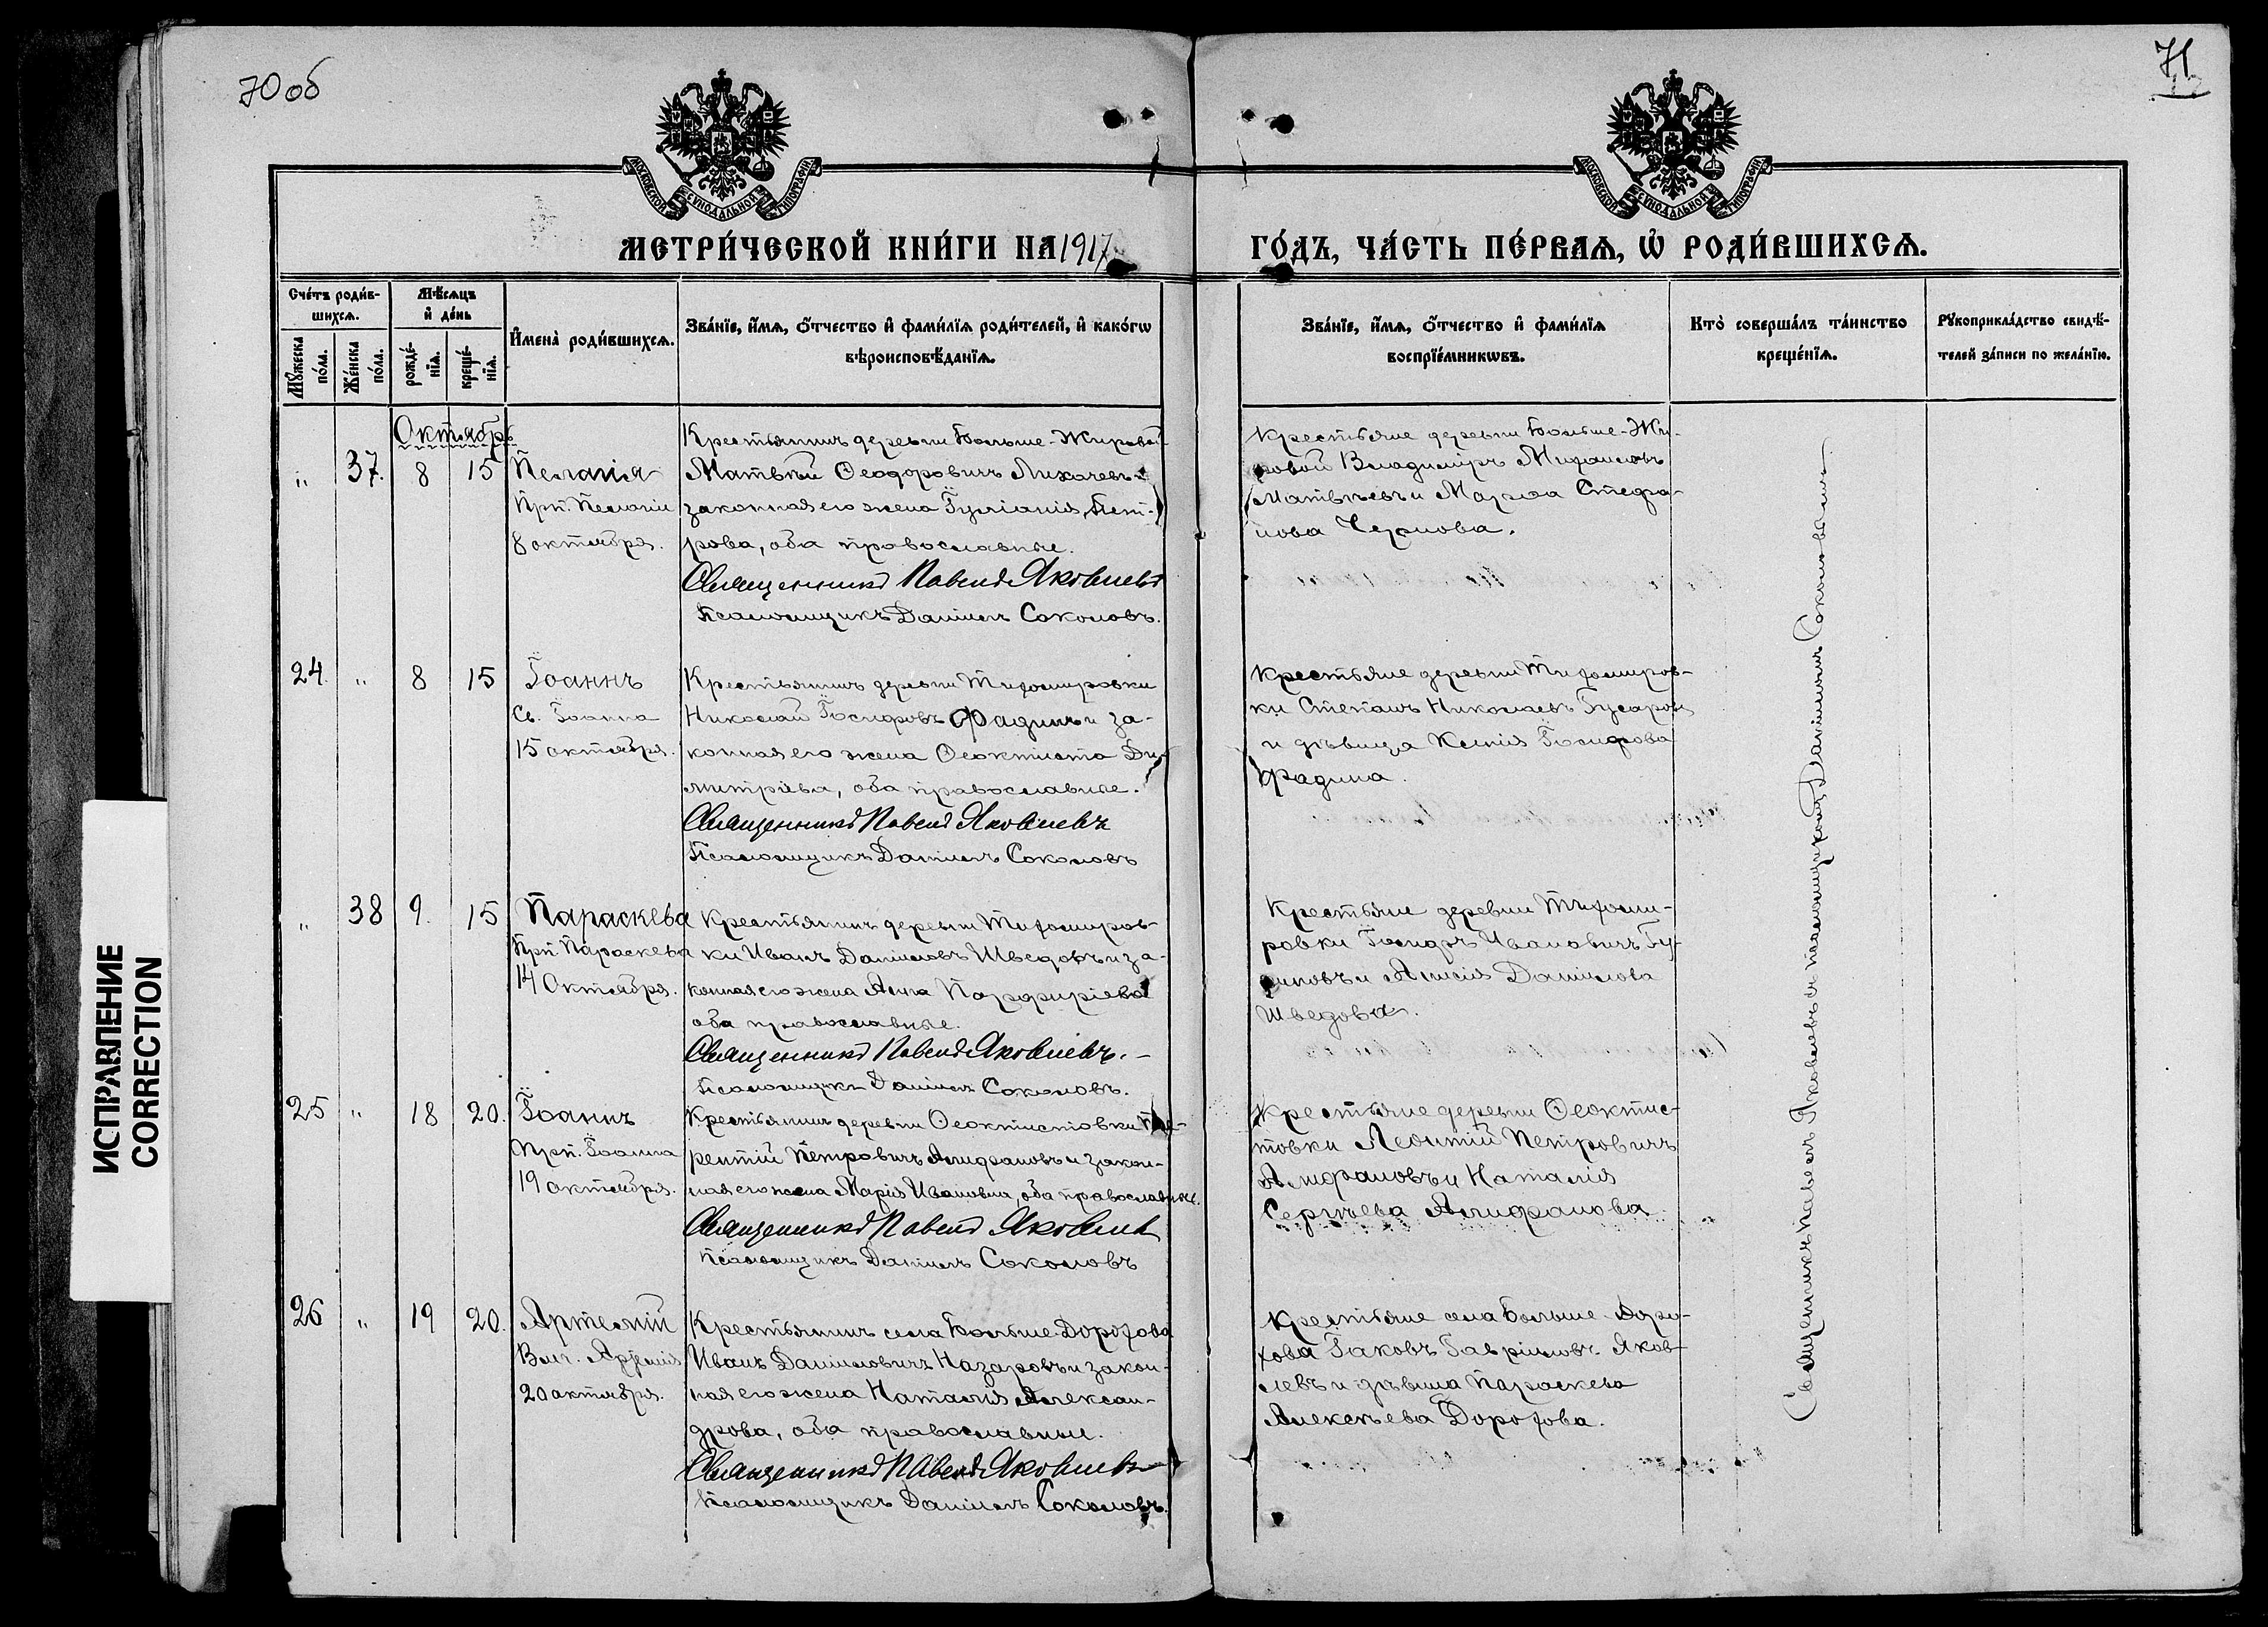 70 об
71
МОСКОВСКОЙ СѴНОДАЛЬНОЙ ТИПОГРАФІИ
МОСКОВСКОЙ СѴНОДАЛЬНОЙ ТИПОГРАФІИ
МЕТРИ́ЧЕСКОЙ КНИ́ГИ НА 1917 ГО́ДЪ, ЧА́СТЬ ПЕ́РВАѦ, Ѡ РОДИ́ВШИХСѦ.
Сче́тъ роди́в-
шихсѧ.
Мꙋжеска по́ла.
Же́нска по́ла.
Мѣ́сѧцъ
и де́нь
рожде́-
нїѧ.
креще́-
нїѧ.
И҆мена̀ роди́вшихсѧ.
Зва́нїе, и҆́мѧ, ѻ҆́тчество и҆ фами́лїѧ роди́телей, и҆ како́гѡ
вѣроисповѣ́данїѧ.
Зва́нїе, и҆́мѧ, ѻ҆́тчество и҆ фами́лїѧ
воспрїе́мникѡвъ.
Кто̀ соверша́лъ та́инство
креще́нїѧ.
Рꙋкоприкла́дство свидѣ́-
телей за́писи по жела́нїю.
Октябрь
" 37. 8 15 Пелагія
Прп. Пелагіи
8 октября.
Крестьянинъ деревни Больше-Жировой
Матвѣй Ѳеодоровичъ Лихачевъ и
законная его жена Іуліанія Пет-
рова, оба православные.
Священникъ Павелъ Яковлевъ
Псаломщикъ Даніилъ Соколовъ.
Крестьяне деревни Больше-Жи-
ровой Владиміръ Михаиловъ
Матвѣевъ и Марѳа Стефа-
нова Чернова.
24. " 8 15 Іоаннъ
Св. Іоанна
15 октября.
Крестьянинъ деревни Тихомировки
Николай Іосифовъ Фадинъ и за-
конная его жена Ѳеоктиста Ди-
митріева, оба православные.
Священникъ Павелъ Яковлевъ
Псаломщикъ Даніилъ Соколовъ
Крестьяне деревни Тихомиров-
ки Степанъ Николаевъ Гусаровъ
и дѣвица Ксенія Іосифова
Фадина.
" 38 9. 15 Параскева
Прп. Параскева
14 Октября.
Крестьянинъ деревни Тихомиров-
ки Иванъ Даніиловъ Шведовъ и за-
конная его жена Анна Парфиріева
оба православные.
Священникъ Павелъ Яковлевъ.
Псаломщикъ Даніилъ Соколовъ.
Крестьяне деревни Тихоми-
ровки Іосифъ Ивановичъ
и Даніилова
Шведова.
25 " 18 20. Іоаннъ
Прп. Іоанна
19 октября.
Крестьянинъ деревни Ѳеоктистовки
рентій Петровичъ Алифановъ и закон-
ная его жена Марія Ивановна, оба православные.
Священникъ Павелъ Яковлевъ
Псаломщикъ Даніилъ Соколовъ
Крестьяне деревни Ѳеоктис-
товки Леонтій Петровичъ
Алифановъ и Наталія
Сергѣева Алифанова
26 " 19 20. Артемій
Влмч. Артемія
20 октября.
Крестьянинъ села Больше-Дорохова
Иванъ Даніиловичъ Назаровъ и закон-
ная его жена Наталія Алексан-
дрова, оба православные.
Священникъ Павелъ Яковлевъ
Псаломщикъ Даніилъ Соколовъ.
Крестьяне села Больше-Доро-
хова Іаковъ Гавріиловъ Яков-
левъ и дѣвица Параскева
Алексѣева Дорохова.
Священникъ Павелъ Яковлевъ съ псаломщикомъ Даніиломъ Соколовымъ
ИСПРАВЛЕНИЕ
CORRECTION